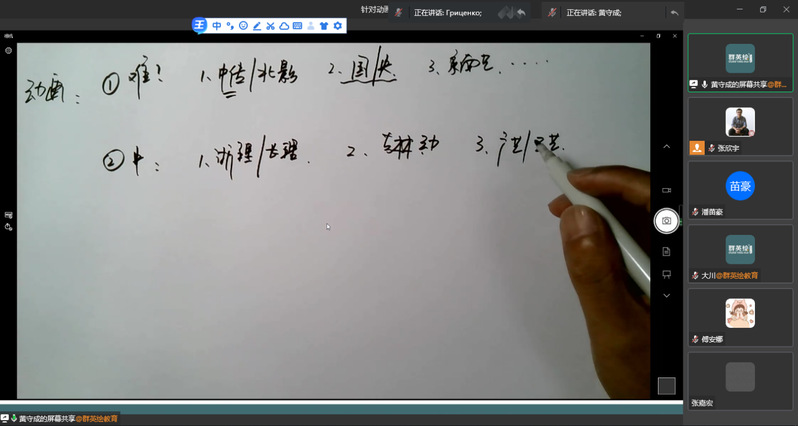 针对动画
正在讲话: Гриценко;
正在讲话: 黄守成;
王 中
动画: ① 难? 1、中传/北影 2、国/央 3、
② 中: 1、浙理/长理. 2、吉林动 3、广艺/
群英绘教育
黄守成的屏幕共享@群...
张欣宇
苗豪
潘苗豪
群英绘教育
大川@群英绘教育
傅安娜
张嘉宏
黄守成的屏幕共享@群英绘教育